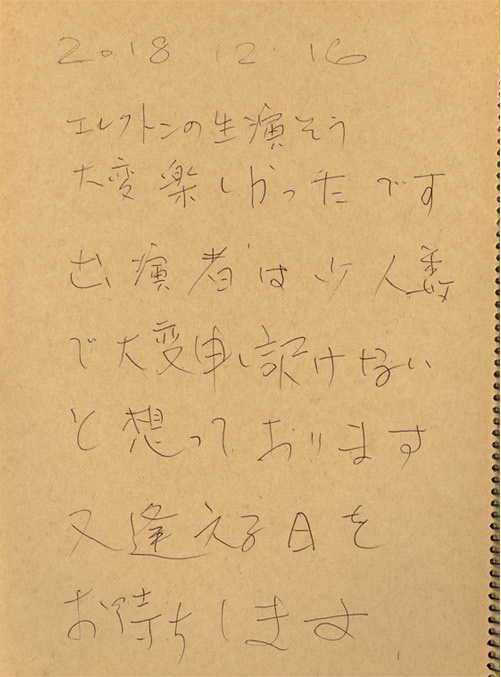 2018 12.16
エレクトンの生演そう
大変楽しかったです
出演者は少人数
で大変申し訳けない
と想っております
又逢える日を
お待ちします